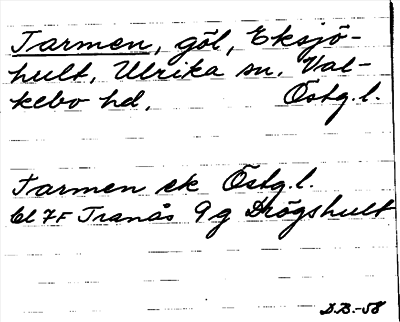 Tarmen, göl, Eksjö-
hult, Ulrika sn, Val-
kebo hd, Östg.l.
Tarmen ek Östg.l.
bl 7F Tranås 9g Drögshult
D.B.-58